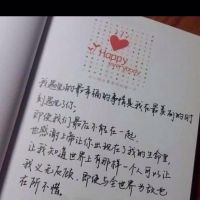 Happy
我遇见的最幸福的事情是我在最美丽的时
刻遇见了你。
即使我们最后不能在一起,
也感谢上帝让你出现在了我的生命里,
让我知道世界上有那样一个人可以让
我义无反顾、即使与全世界为敌也
在所不惜。